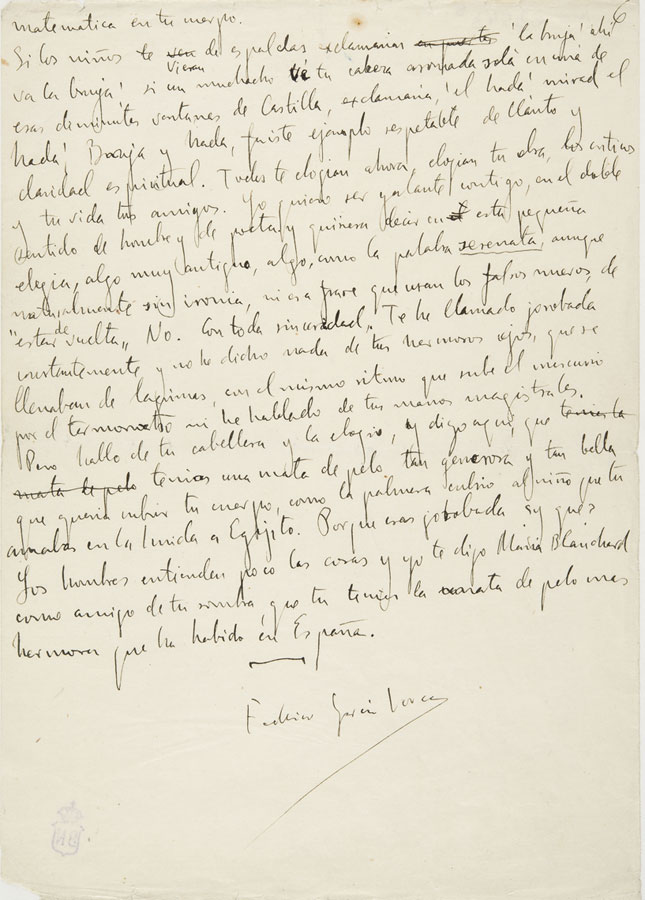 6
matemática en tu cuerpo.
Si los niños te ven vieran de espaldas exclamarían ¡la bruja! ahí
va la bruja! si un muchacho vé tu cabeza asomada sola en una de
esas diminutas ventanas de Castilla, exclamaría, ¡el hada! mirad el
hada! Bruja y hada, fuiste ejemplo respetable de llanto y
claridad espiritual. Todos te elogian ahora, elogian tu obra, los críticos
y tu vida tus amigos. Yo quiero ser galante contigo, en el doble
sentido de hombre y de poeta y quisiera decir en esta pequeña
elegia, algo muy antiguo, algo, como la palabra serenata, aunque
naturalmente sin ironia, ni esa frase que usan los falsos nuevos, de
"estar de vuelta" No. Con toda sinceridad. Te he llamado jorobada
constantemente, y no he dicho nada de tus hermosos ojos, que se
llenaban de lagrimas, con el mismo ritmo que sube el mercurio
por el termometro ni he hablado de tus manos magistrales.
Pero hablo de tu cabellera y la elogio, y digo aqui, que tenias la
mata de pelo tenias una mata de pelo tan generosa y tan bella
que queria cubrir tu cuerpo, como la palmera cubrió al niño que tu
amabas en la huida a Egipto. Porque eras jorobada ¿y qué?
Los hombres entienden poco las cosas y yo te digo María Blanchard
como amigo de tu sombra, que tu tenias la mata de pelo mas
hermosa que ha habido en España.
Federico García Lorca